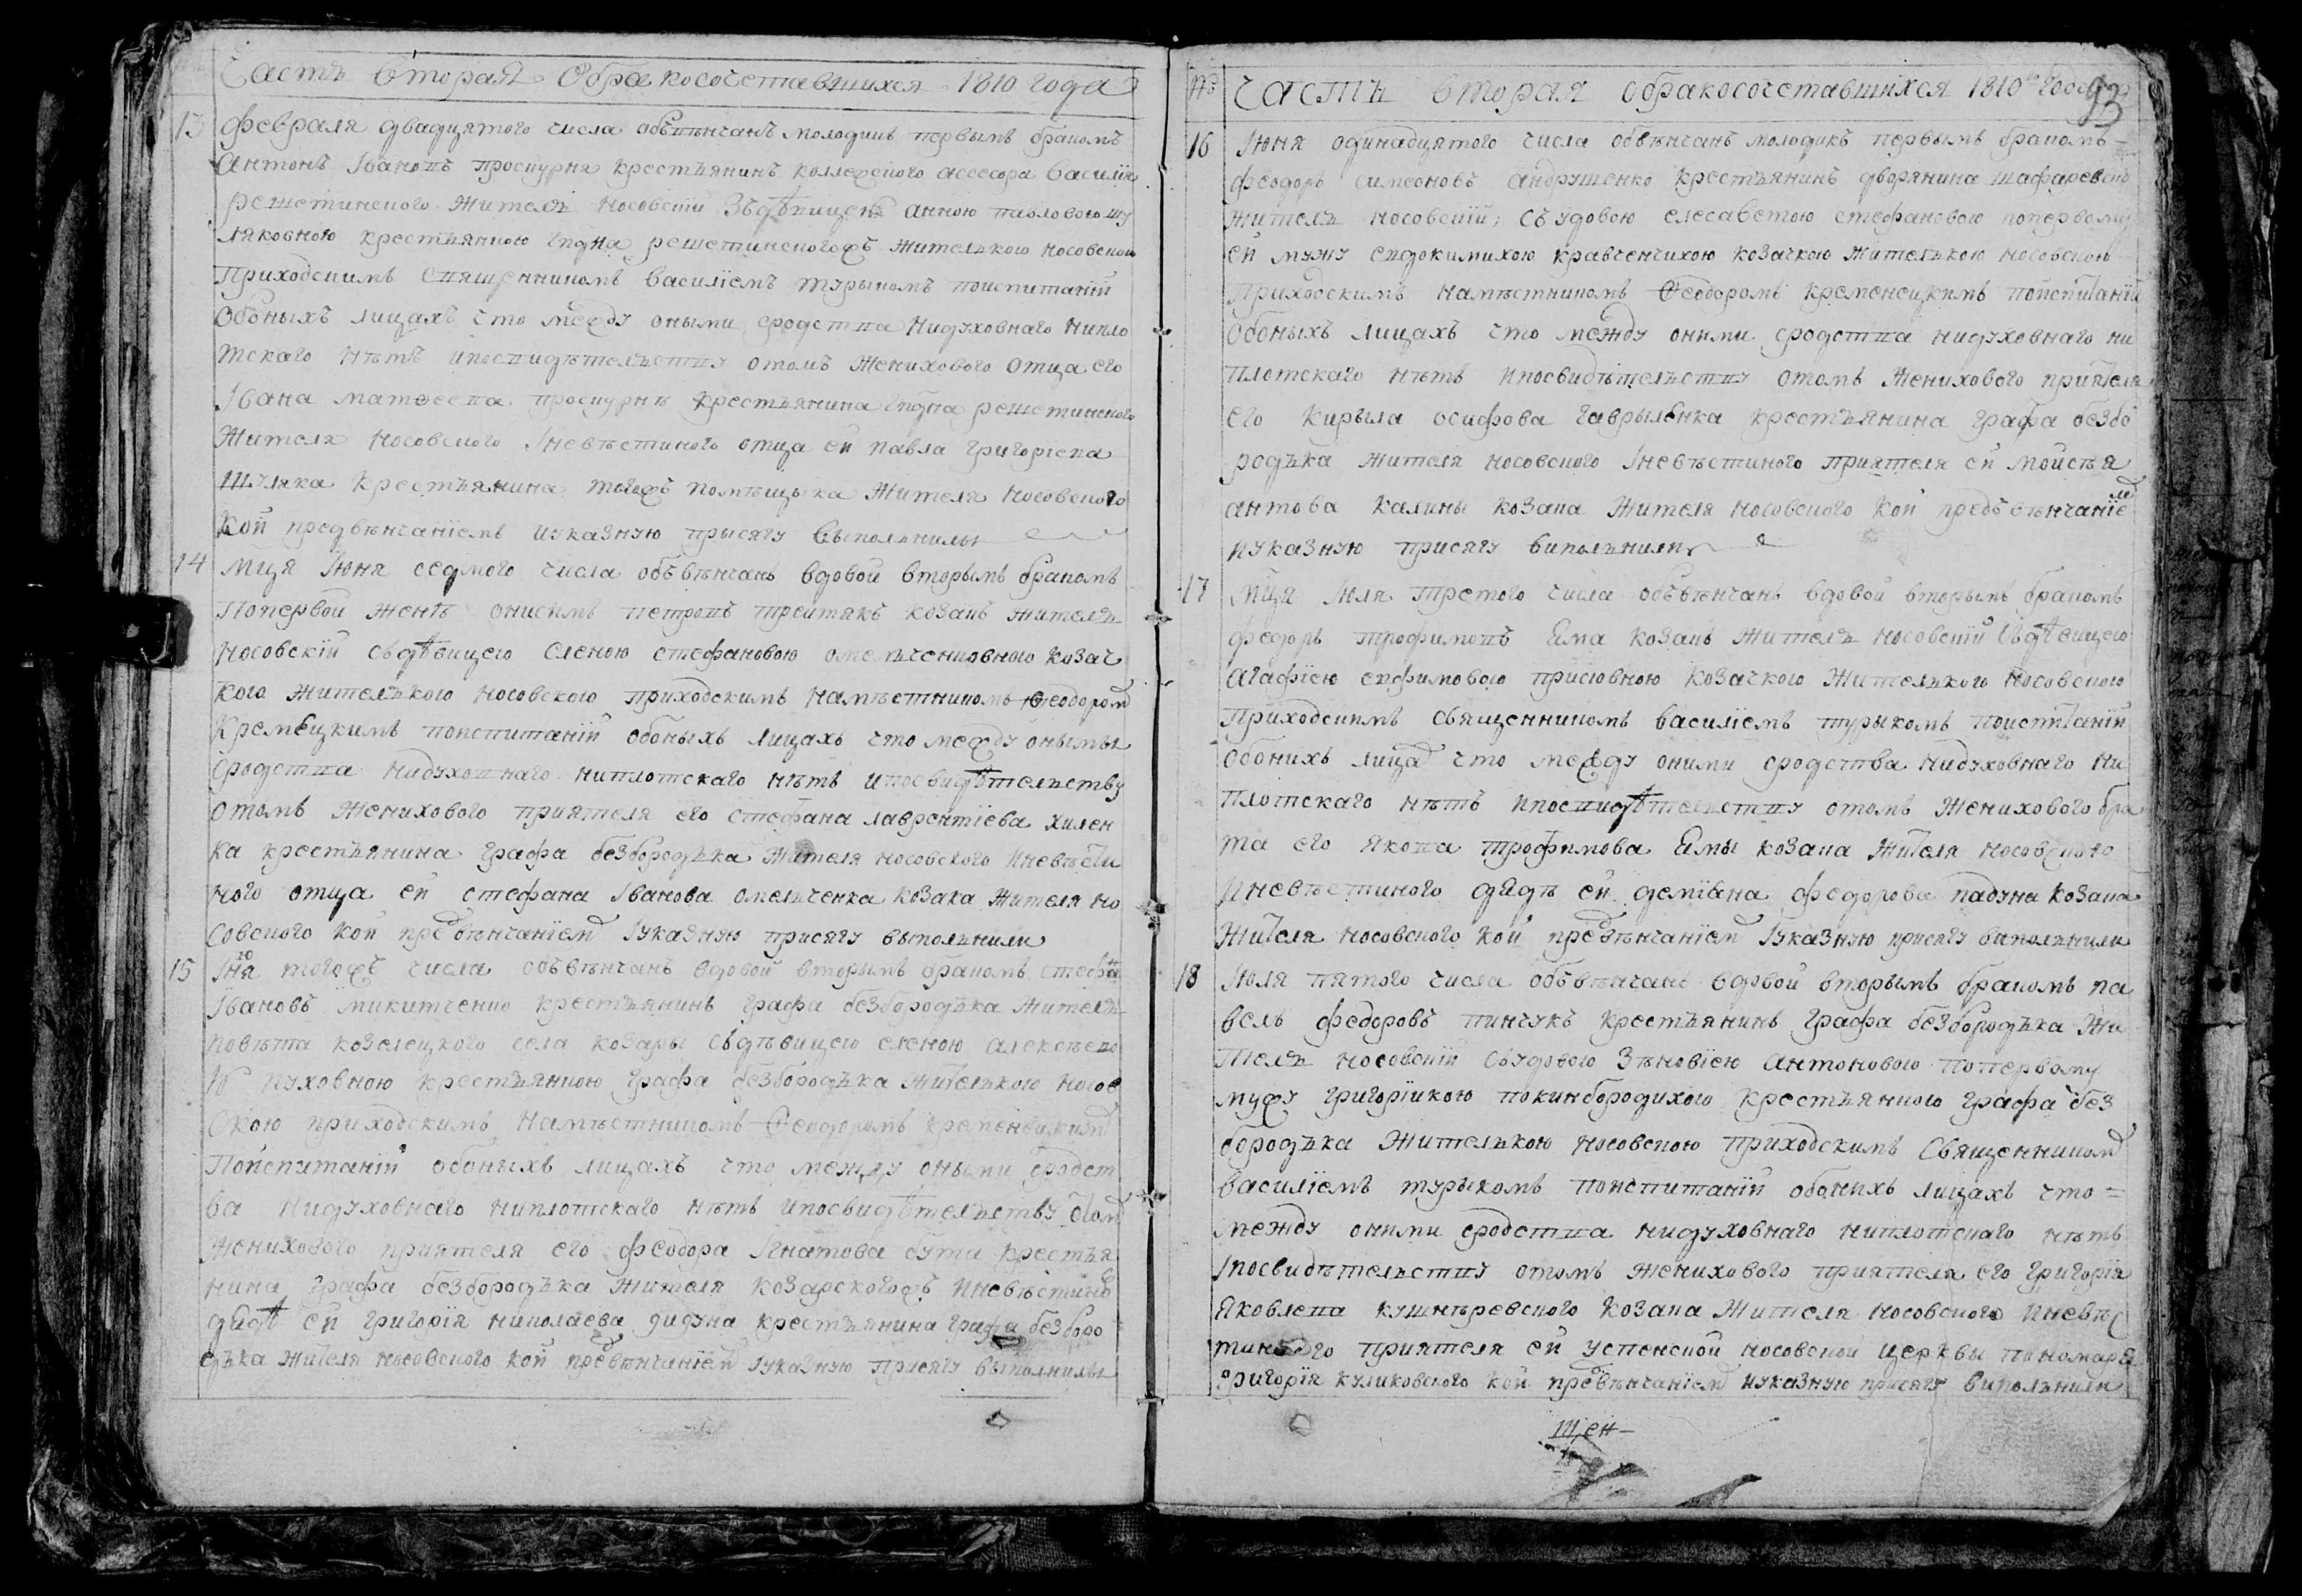 Часть вторая Обракосочетавшихся 1810 года
13 февраля двадцятого числа обвѣнчанъ молодикъ первымъ бракомъ
Антонъ Івановъ проскурня крестьянинъ коллежского асесора Василія
решетинского житель носовскій зъдѣвицею анною павловою шу
ляковною крестьянкою гпдна решетинскогожъ жителькою носовскою
Приходскимъ священникомъ василіемъ турыкомъ поиспитаніи
Обоныхъ лицахъ что между оными сродства нидуховнаго нипло
тскаго нѣтъ ипосвидѣтельству отомъ женихового отца его
Івана матвеева проскурнѣ крестьянина гпдна решетинского
Жителя носовского Iневѣстиного отца ей павла григоріева
Шуляка крестьянина тогожъ помѣщыка жителя носовского
Кои предвѣнчаніемъ иуказную присягу выполънилы
14 Мця Июня седмого числа обѣвѣнчанъ вдовой вторымъ бракомъ
Попервой женѣ онисимъ петровъ третякъ козакъ житель
Носовскій съдѣвицею Еленою стефановою омельченковною козач
кою жителькою носовскою приходскимъ намѣстникомъ Ѳеодоромъ
Кременецкимъ поиспитаній обоныхъ лицахъ что между онымы
Сродства нидуховнаго ниплотскаго нѣтъ ипосвидѣтельству
отомъ женихового приятеля его стефана лаврентіева хилен
ка крестьянина графа безбородька жителя носовского Иневѣсти
ного отца ей стефана Іванова омельченка козака жителя но
совского кои предвѣнчаніемъ Іуказную присягу выполънили
15 Iюня тогожъ числа обѣвѣнчанъ вдовой вторымъ бракомъ стефа
Iвановъ микитченко крестьянинъ графа безбородька житель
Повѣта козелецкого села козары съдѣвицею еленою алексѣево
ю пуховною крестьянкою графа безбородька жителькою носов
скою приходскимъ намѣстникомъ Ѳеодоромъ кременецкимъ
Поиспитаній обоныхъ лицахъ что между оными сродст
ва нидуховнаго ниплотскаго нѣтъ ипосвидѣтельству отомъ
Женихового приятеля его феодора Iгнатова бута крестья
нина графа безбородька жителя козарскогожъ Иневѣстино
дядѣ ей григорія николаева дидуна крестьянина графа безборо
дька жителя носовского кои предвѣнчаніемъ Іуказную присягу выполнилы
№ ЧАСТЬ вторая обракосочетавшихся 1810го года 93
16 Июня одинадцятого числа обвѣнчанъ молодикъ первымъ бракомъ
феодоръ симеоновъ андрушенко крестьянинъ дворянина шафаревско
жителъ носовскій; съудовою елесаветою стефановою попервому
ей мужу евдокимихою кравченчихою козачкою жителькою носовскою
Приходскимъ намѣстникомъ Ѳеодоромъ кременецкимъ поиспитаній
Обоныхъ лицахъ что между оними сродства нидуховнаго ни
плотскаго нѣтъ ипосвидѣтельству отомъ женихового приятеля
его кирыла осифова гаврыленка крестьянина графа безбо
родька жителя носовского Iневѣстиного приятеля ей мойсѣя
антова калины козака жителя носовского кои предъвѣнчаніем
иуказную присягу виполънили
17 Мця Июля третого числа обѣвѣнчанъ вдовой вторымъ бракомъ
федоръ трофимовъ Ема козакъ житель носовскій съдѣвицею
агафіею евфимовою присіовною козачкою жителькою носовскою
Приходскимъ священникомъ василіемъ турыкомъ поиспитаній
Обонихъ лица что между оними сродства нидуховнаго ни
плотскаго нѣтъ ипосвидѣтельству отомъ женихового бра
та его якова трофимова Емы козака жителя носовского
Иневѣстиного дядѣ ей деміана федорова падуна козака
Жителя носовского кои предвѣнчаніемъ Іуказную присягу виполънили
18 Июля пятого числа обѣвѣнчанъ вдовой вторымъ бракомъ па
велъ федоровъ пинчукъ крестьянинъ графа безбородька жи
тель носовскій съудовою Зѣновіею антоновою попервому
мужу григоріихою покинбородихою крестьянкою графа без
бородька жителькою носовскою приходскимъ священникомъ
василіемъ турыкомъ поиспитаній обонихъ лицахъ что =
между оними сродства нидуховнаго ниплотскаго нѣтъ
Iпосвидѣтельству отомъ женихового приятеля его григорія
Яковлева кушнѣревского козака жителя носовского Иневѣс
тиного приятеля ей успенской носовской церквы пономаря
григорія куликовского кои предвѣнчаніемъ иуказную присягу виполънили